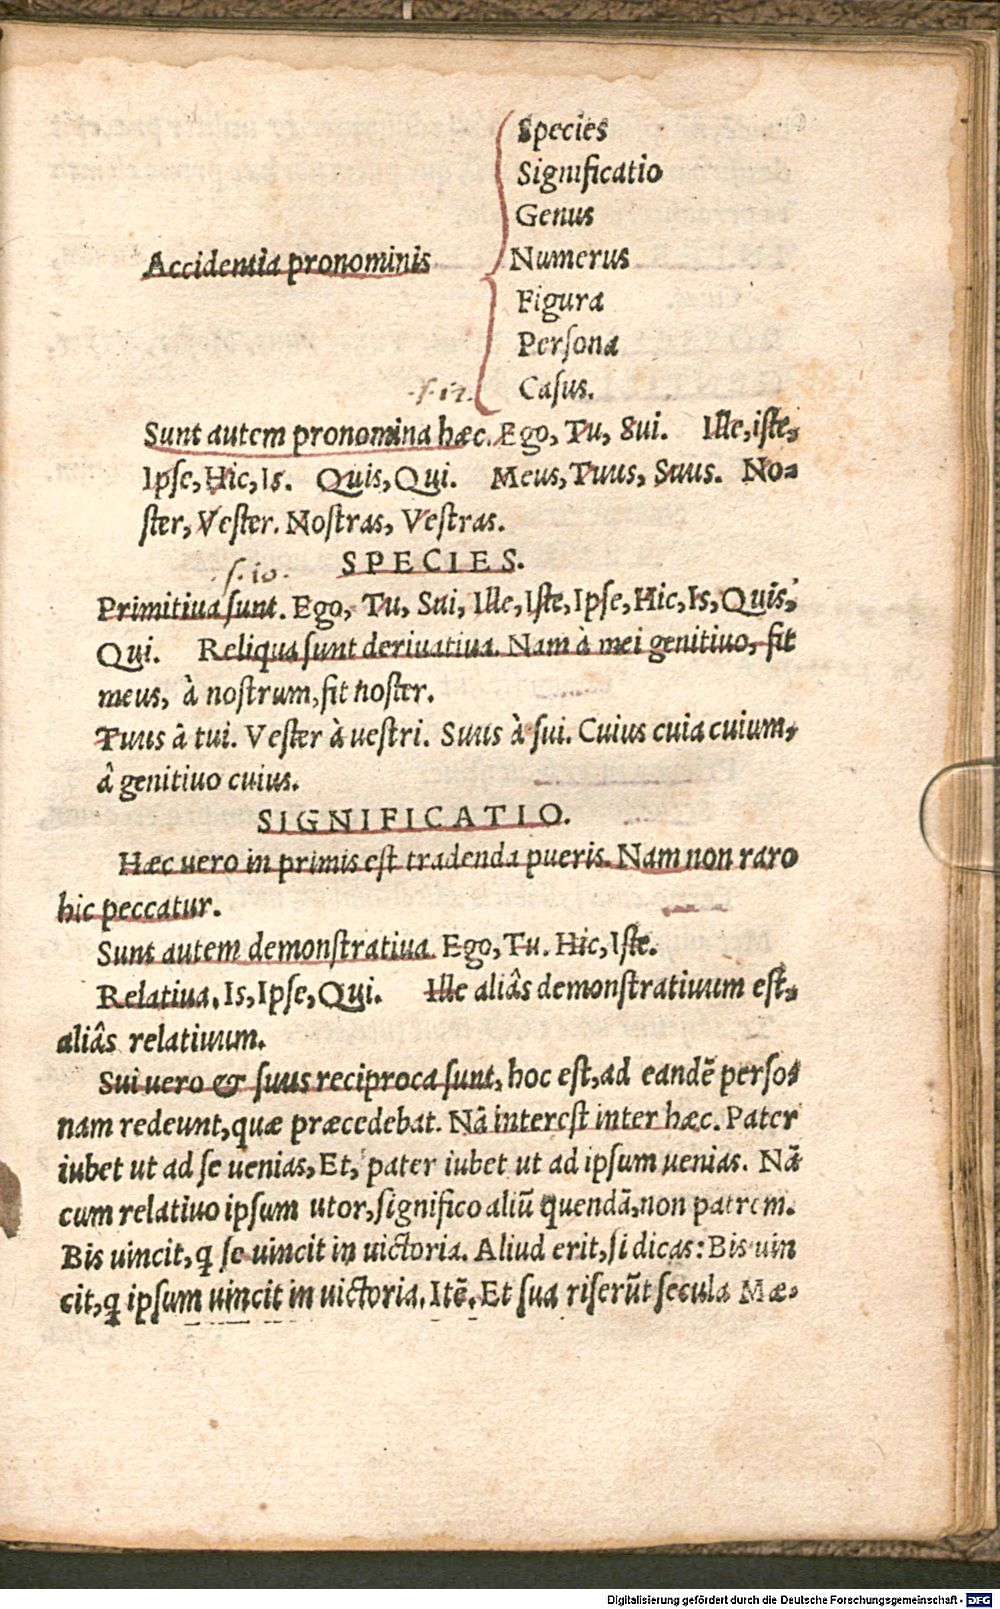 Species
Significatio
Genus
Accidentia pronominis Numerus
Figura
Persona
Casus.
·ſ·17.
Sunt autem pronomina hæc. Ego, Tu, Sui. Ille, iſte,
Ipſe, Hic, Is. Quis, Qui. Meus, Tuus, Suus. No-
ſter, Veſter. Noſtras, Veſtras.
SPECIES.
·ſ·10·
Primitiua ſunt. Ego, Tu, Sui, Ille, Iſte, Ipſe, Hic, Is, Quis,
Qui. Reliqua ſunt deriuatiua. Nam à mei genitiuo, fit
meus, à noſtrum, fit noſter.
Tuus â tui. Veſter à ueſtri. Suus à ſui. Cuius cuia cuium,
â genitiuo cuius.
SIGNIFICATIO.
Hæc uero in primis est tradenda pueris. Nam non raro
hic peccatur.
Sunt autem demonſtratiua. Ego, Tu. Hic, Iſte.
Relatiua. Is, Ipſe, Qui. Ille aliâs demonſtratiuum eſt,
aliâs relatiuum.
Sui uero & ſuus reciproca ſunt, hoc eſt, ad eandē perſo-
nam redeunt, quæ præcedebat. Nā intereſt inter hæc. Pater
iubet ut ad ſe uenias, Et, pater iubet ut ad ipſum uenias. Nā
cum relatiuo ipſum utor, ſignifico aliū quendā, non patrem.
Bis uincit, ꝗ ſe uincit in uictoria. Aliud erit, ſi dicas: Bis uin
cit, ꝗ ipſum uincit in uictoria. Itē. Et ſua riſerūt ſecula Mæ-
Digitalisierung gefördert durch die Deutsche Forschungsgemeinschaft - DFG